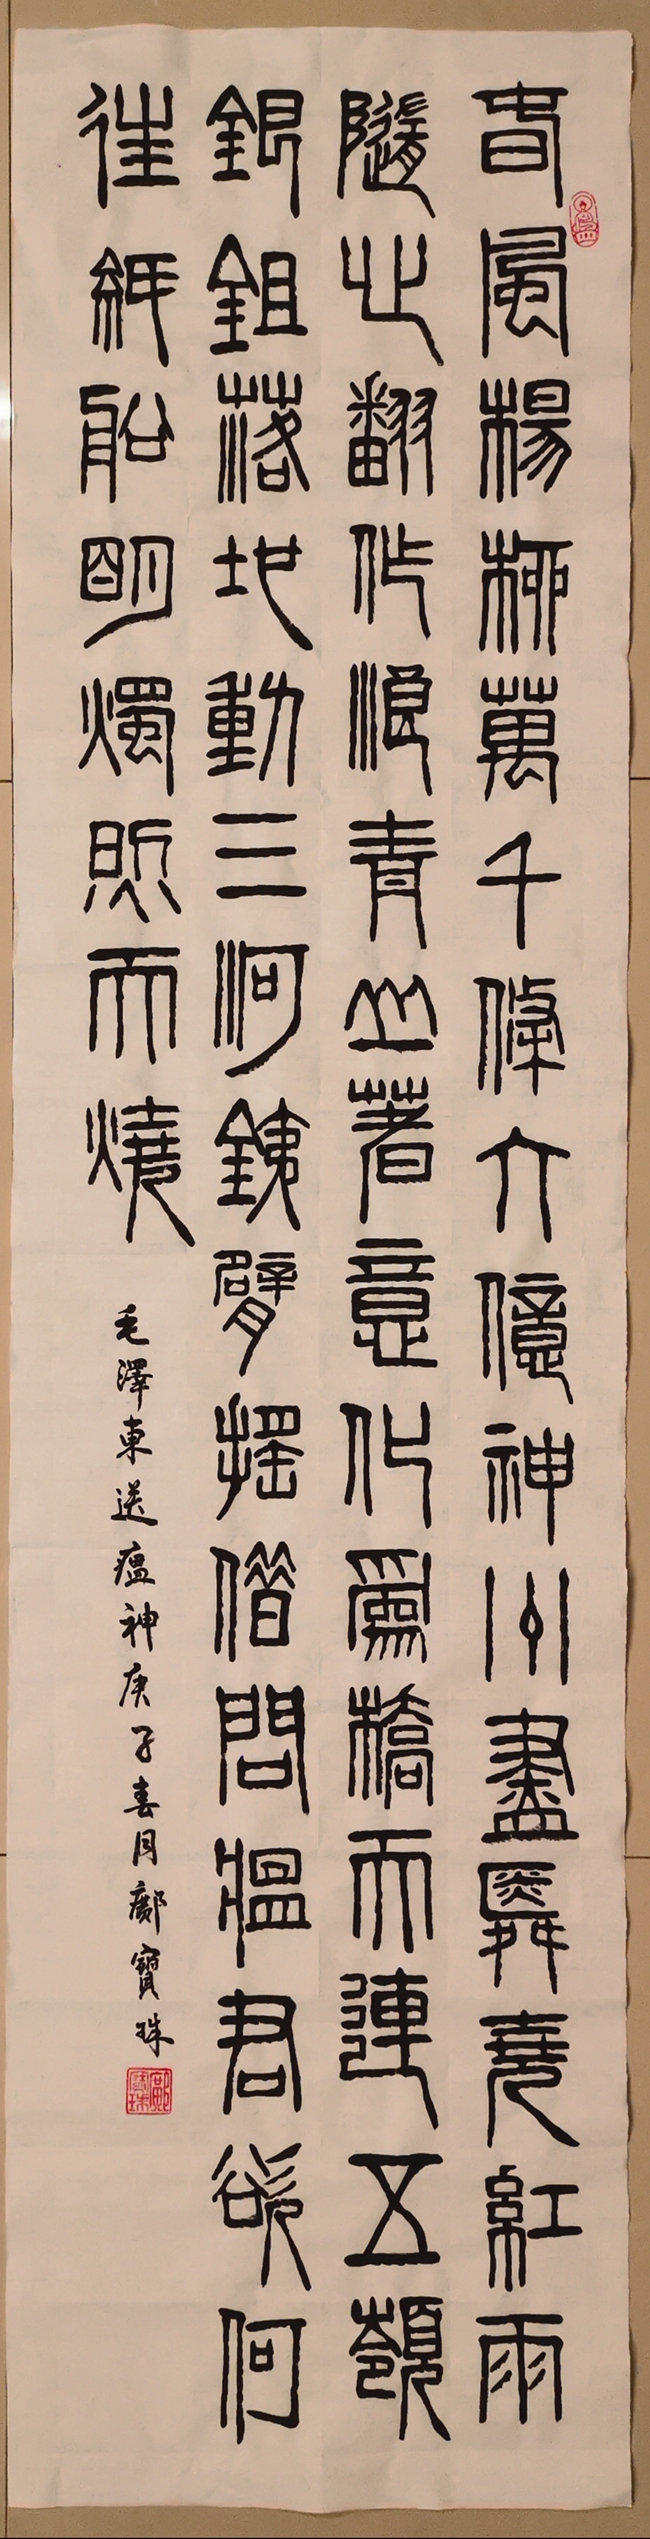 春風楊柳萬千條六億神州盡舜堯紅雨
隨心翻作浪青山著意化為橋天連五嶺
銀鉏落地動三河銕臂搖借問瘟君欲何
往紙船明燭照天燒
毛澤東送瘟神庚子春月鄺寶珠
鄺寶珠